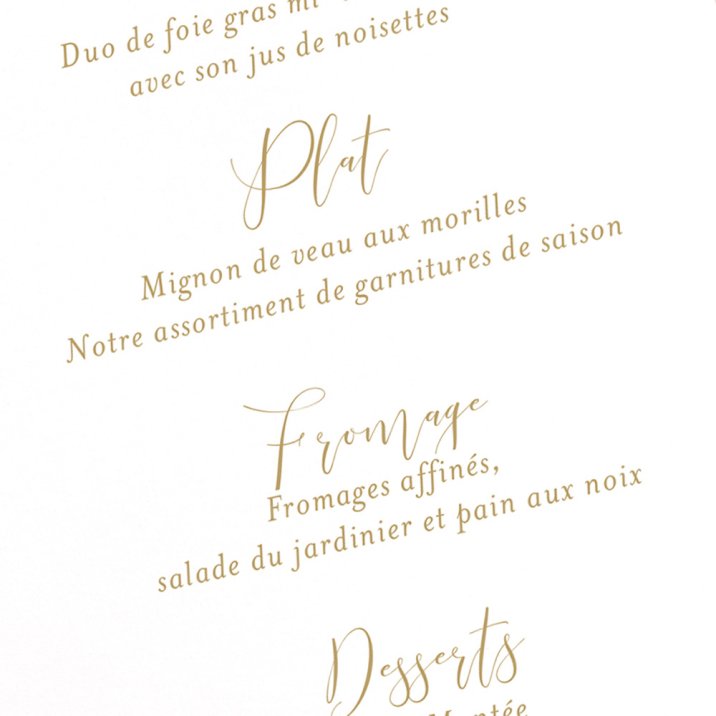 Duo de foie gras
avec son jus de noisettes
Plat
Mignon de veau aux morilles
Notre assortiment de garnitures de saison
Fromage
Fromages affinés,
salade du jardinier et pain aux noix
Desserts